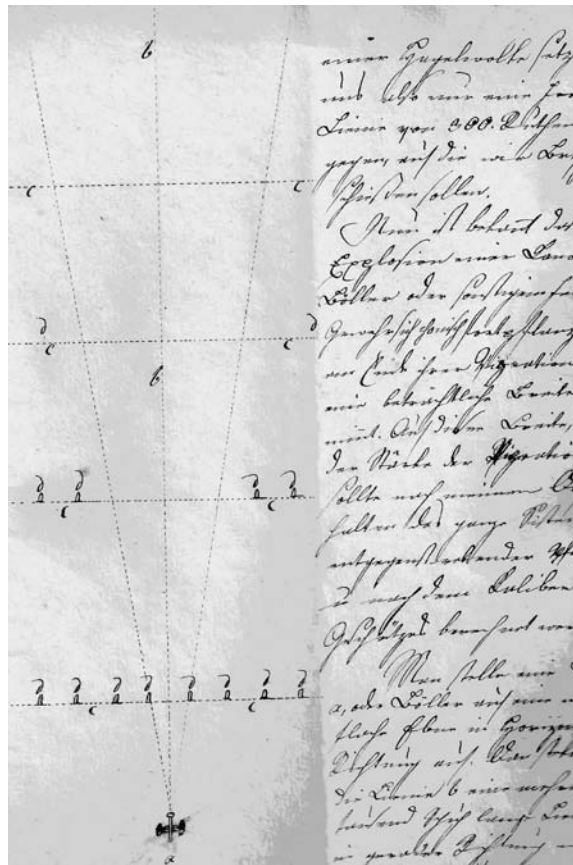 b
c c
d c c d
b
d d d d
c c
d d d d d d d d
c c
a
einer Hagelwolke setz
uns also nur eine
Linie von 300. Ruthen
gegen, auf die wir
schießen sollen.
Nun ist bekant das
Explosion einer Kano
Böller oder sonstigem
Gewehr sich conisch fortpflanz
am Ende ihrer Vigration
eine beträchtliche Breite
nimt. Aus dieser Breite,
der Stärke der Vigration
sollte nach meinem
halten das ganze Siste
entgegenstrebender
u nach dem Kaliber
Geschützes berechnet wer
Man stelle eine
a, oder Böller auf eine
Ebne in Horizon
Richtung auf. Dan
die Linie b eine mehr
tausend Schuh lange
in gerader Richtung